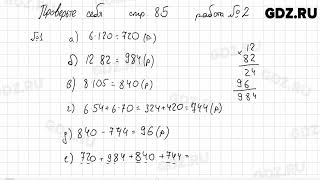 GDZ.RU
Проверьте себя стр. 85 работа №2
№1 а) 6·120=720 (р)
б) 12·82=984 (р)
в) 8·105=840 (р)
г) 6·54+6·70=324+420=744 (р)
д) 840-744=96 (р)
е) 720+984+840+744=
12
× 82
24
96
984